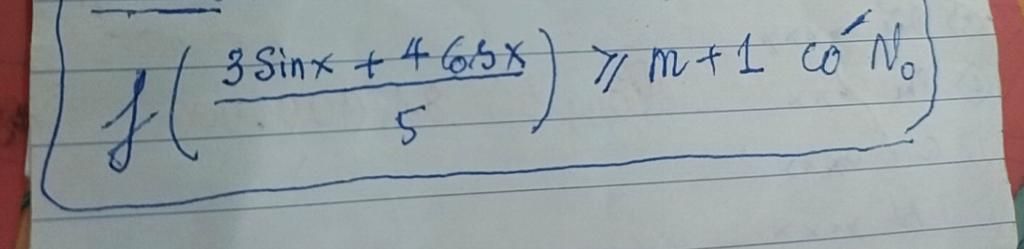 f( (3 Sinx + 4 Cosx) / 5 ) ⩾ m + 1 có No